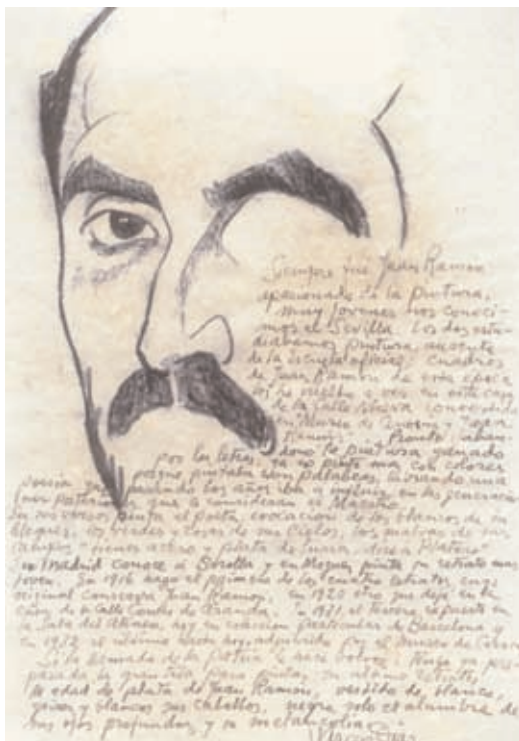 Siempre fue Juan Ramón
apasionado de la pintura.
Muy jóvenes nos conoci-
mos en Sevilla. Los dos estu-
diabamos pintura
de la Escuela oficial, cuadros
de Juan Ramón de esta época
en esta casa
de la Calle Nueva convertida
en Museo de Zenobia y Juan
Ramón. Pronto aban-
dono la pintura ganado
por las letras, ya no pinta mas con colores
porque pintaba con palabras, labrando una
poesia que pasando los años iba a influir en las generacio-
nes posteriores que le consideran el Maestro
En sus versos pinta el poeta, evocación de los blancos de su
Moguer, los verdes y rosas de sus siglos, los malvas de sus
campos, tienes acero y plata de luna, dice a Platero
En Madrid conoce a Sorolla y en Moguer pinta su retrato mas
joven. En 1916 hago el primero de los cuatro retratos cuyo
original conserva Juan Ramón, en 1920 otro que dejé en la
casa de la Calle Conde de Aranda, en 1931 el tercero, expuesto en
la Sala del Ateneo, hoy en colección particular de Barcelona y
en 1932 el último
la llamada de la patria
para pintar su último retrato,
la edad de plata de Juan Ramón, vestido de blanco,
grises y blancos sus cabellos, negro solo el alumbre de
sus ojos profundos y su melancolia